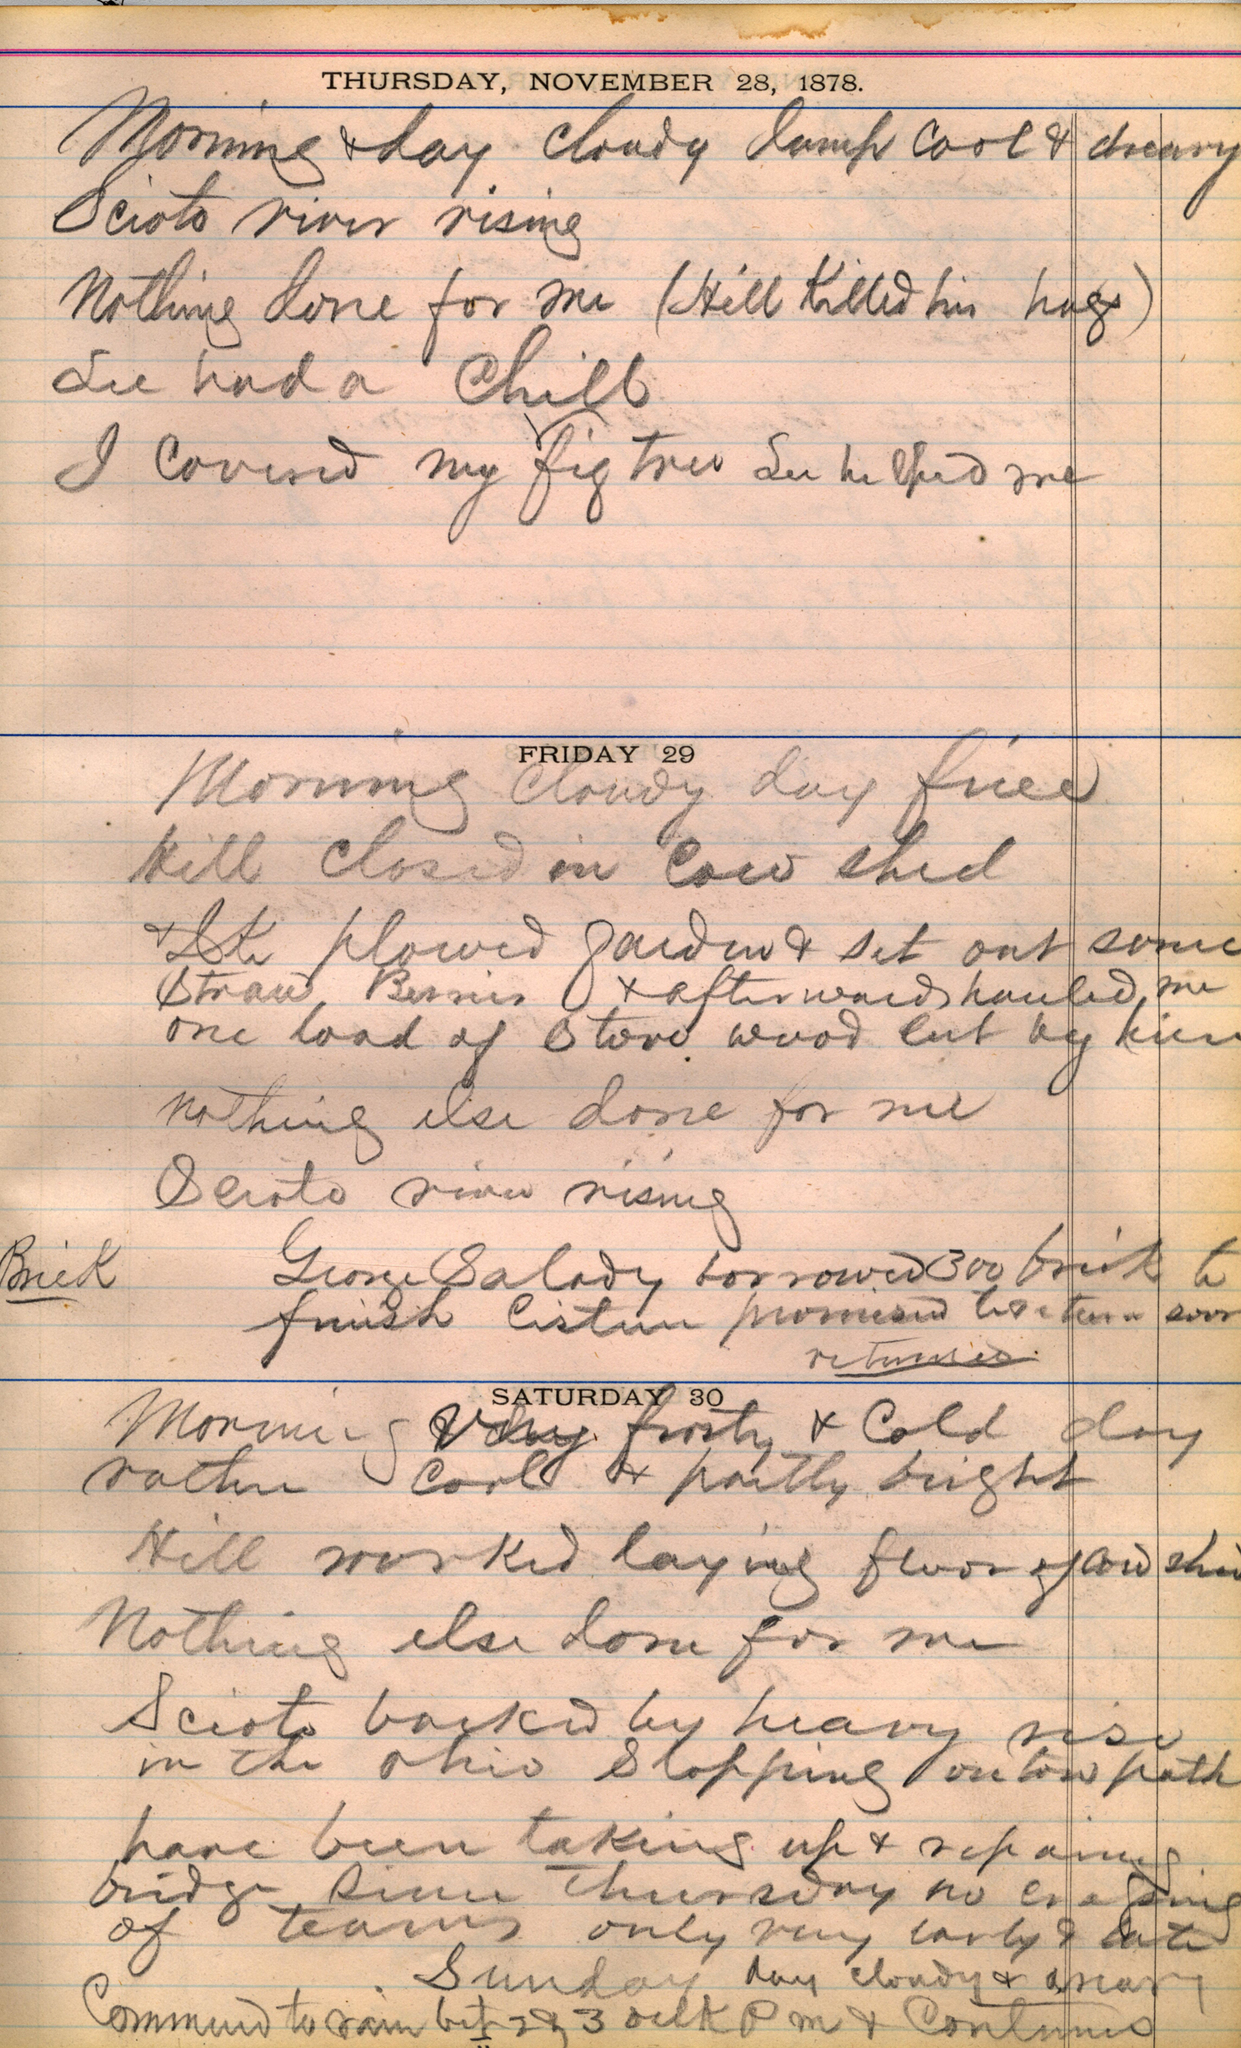 THURSDAY, NOVEMBER 28, 1878.
Morning & day cloudy damp cool & dreary
Scioto river rising
Nothing done for me (Hill Killed his hogs)
Lee had a Chill
I Covered my fig tree Lee helped me
FRIDAY 29
Morning cloudy day fine
Hill closed in Cow shed
& plowed garden & set out some
Straw Berries & afterwards hauled me
one load of Stove wood cut by him
nothing else done for me
Scioto river rising
Brick
George Salady borrowed 300 brick to
finish Cistern promised to return soon
returned
SATURDAY 30
Morning Very frosty & Cold day
rather Cool & partly bright
Hill worked laying floor of cow shed
Nothing else done for me
Scioto backed by heavy rise
in the Ohio Slopping on tow path
have been taking up & repairing
bridge Since Thursday no crossing
of teams only very early & late
Sunday day cloudy & dreary
Commenced to rain bet 2 & 3 oclk P m & Continues